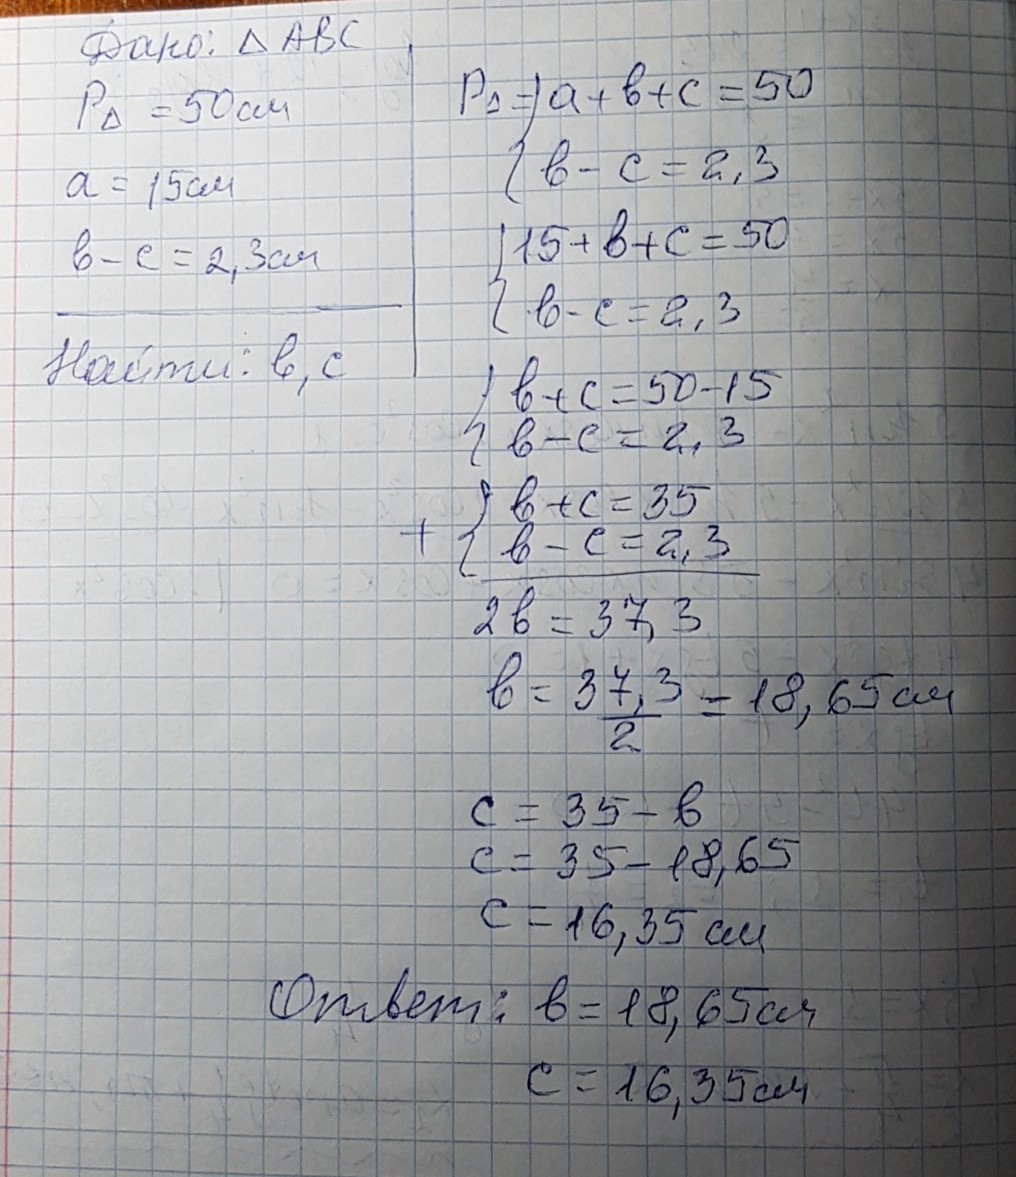 Дано: △ ABC
P△ = 50см
a = 15см
в - c = 2,3см
Найти: в, c
P△ = { a + в + c = 50
{ в - c = 2,3
{ 15 + в + c = 50
{ в - c = 2,3
{ в + c = 50 - 15
{ в - c = 2,3
+ { в + c = 35
{ в - c = 2,3
2в = 37,3
в = 37,3/2 = 18,65см
c = 35 - в
c = 35 - 18,65
c = 16,35 см
Ответ: в = 18,65см
c = 16,35см